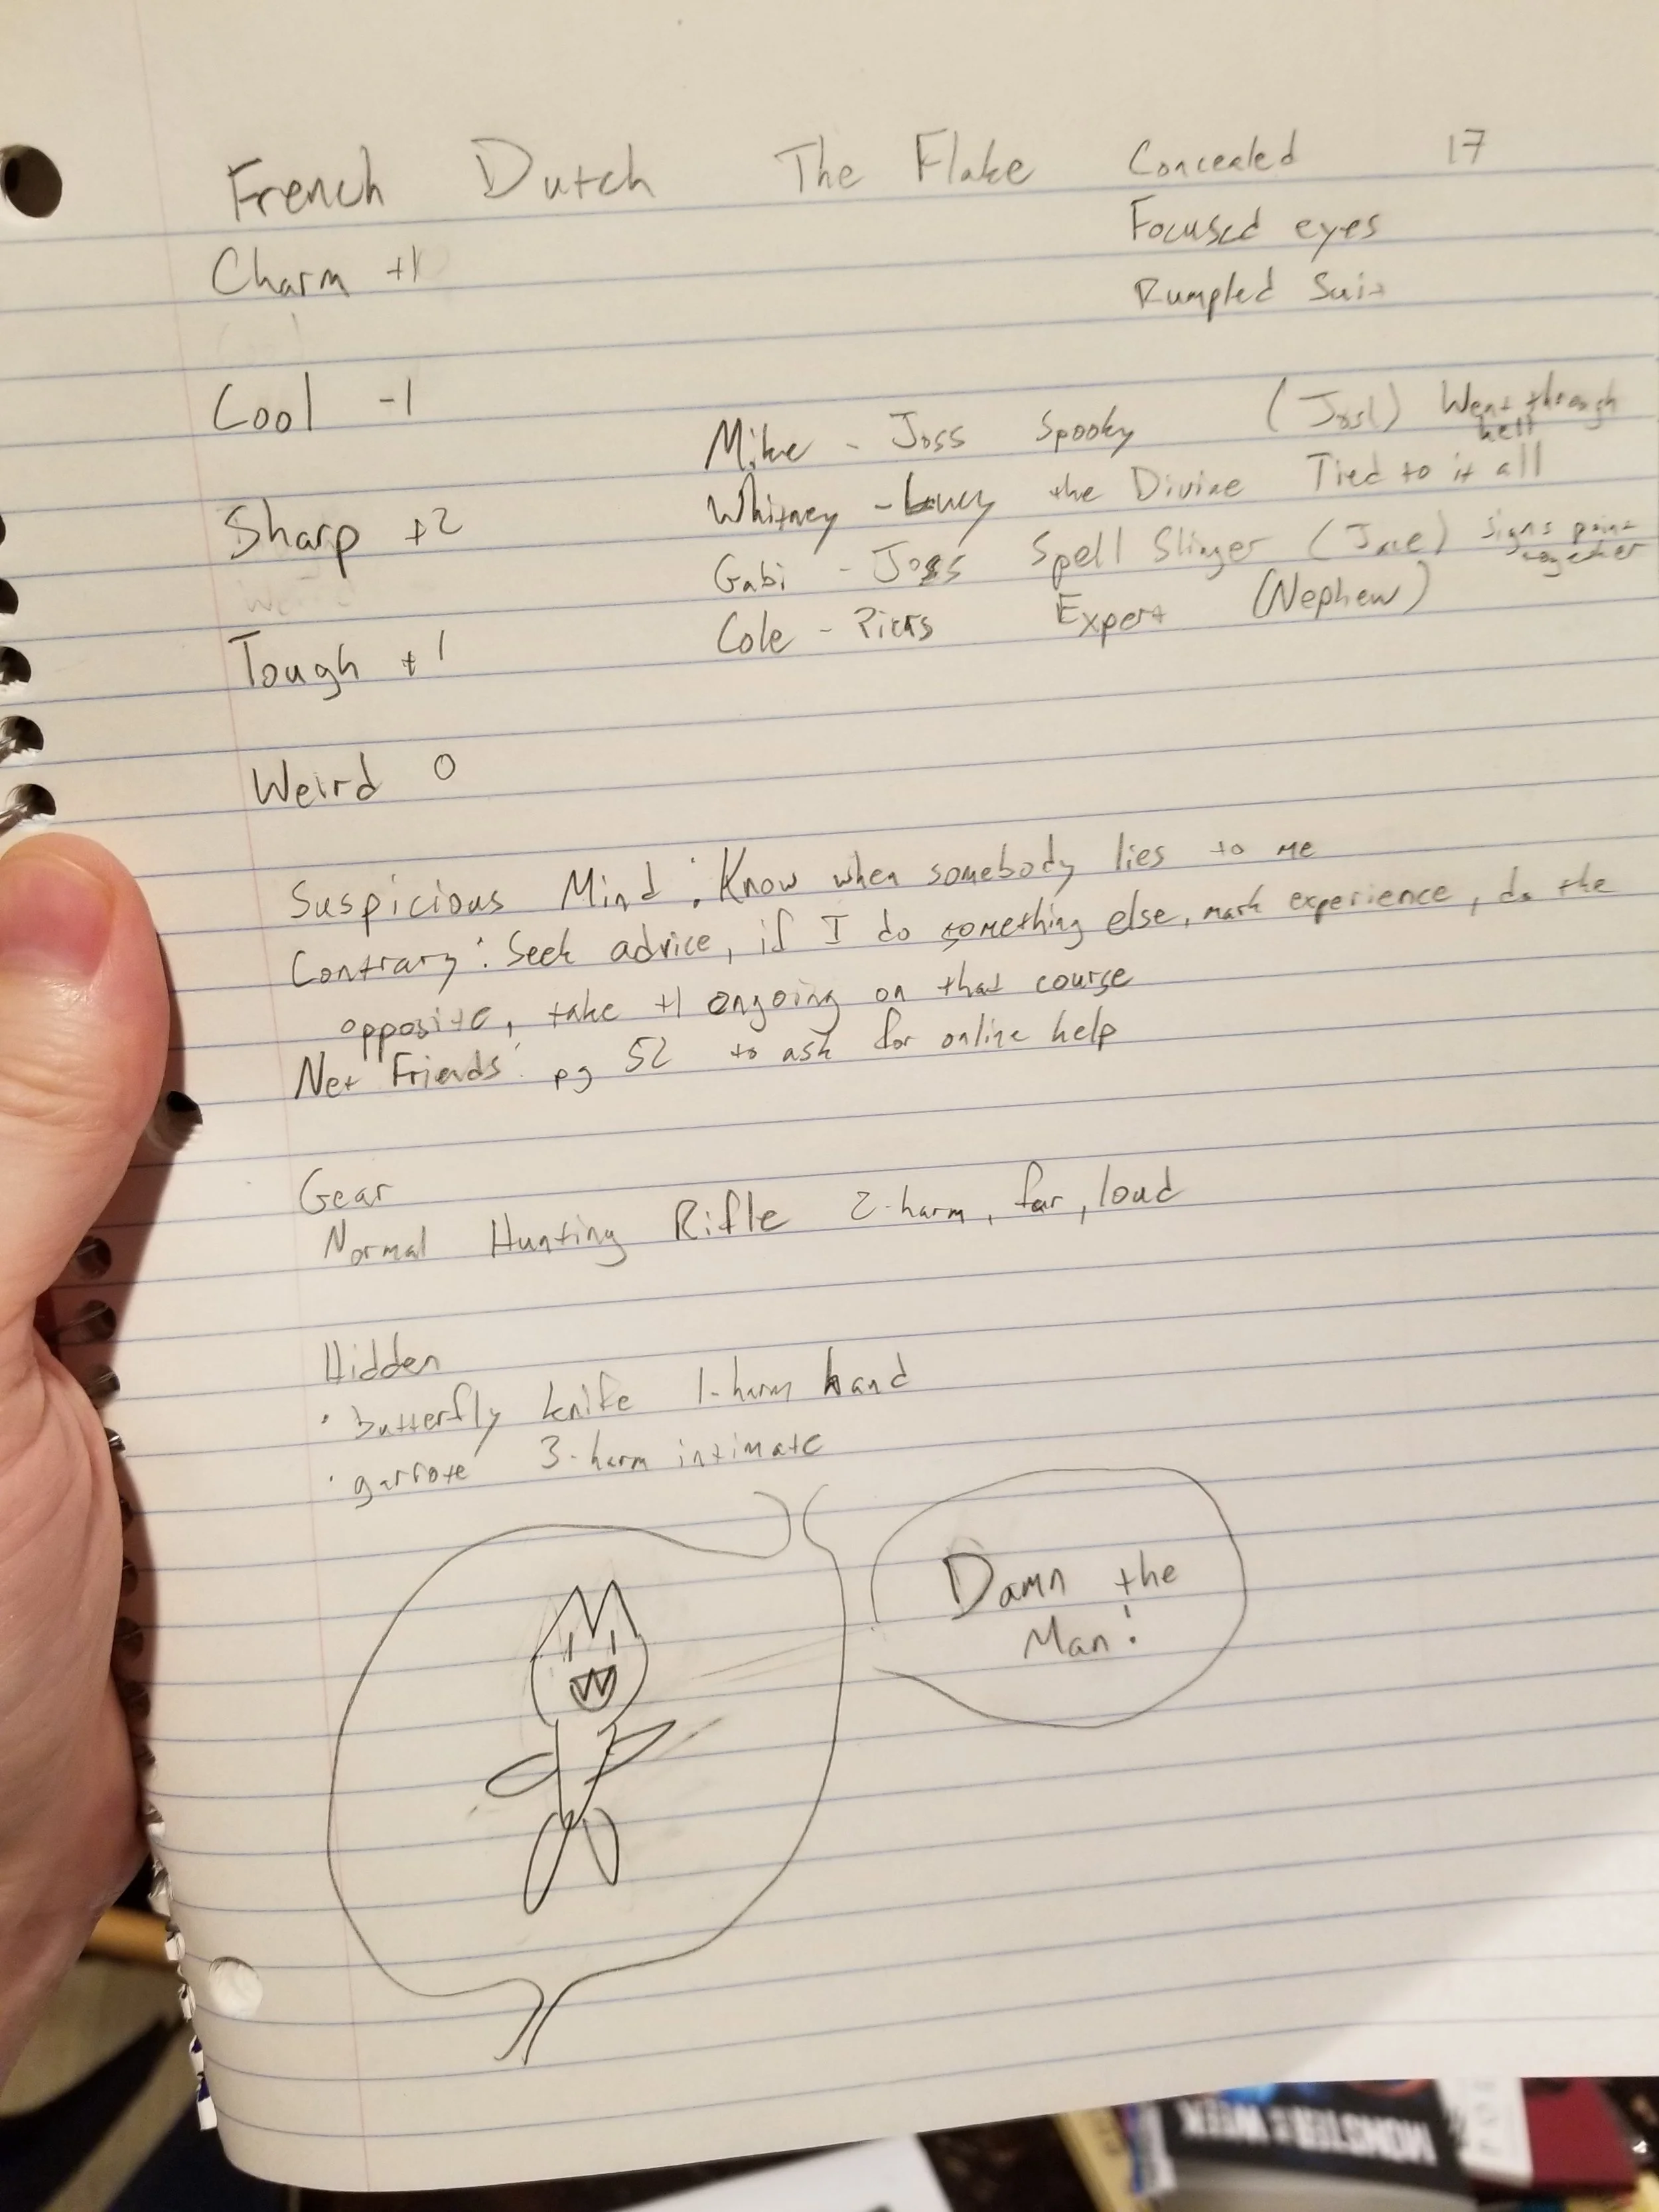 French Dutch The Flake Concealed 17
Focused eyes
Rumpled Suit
Charm +1
Cool -1
Sharp +2
Tough +1
Weird 0
Mike - Joss Spooky (Josl) Went through hell
Whitney - Lucy the Divine Tied to it all
Gabi - Joss Spell Slinger (Jae) Signs point together
Cole - Expert (Nephew)
Suspicious Mind: Know when somebody lies to me
Contrary: Seek advice, if I do something else, mark experience, do the
opposite, take +1 ongoing on that course
Net Friends: pg 52 to ask for online help
Gear
Normal Hunting Rifle 2-harm, far, loud
Hidden
· butterfly knife 1-harm hand
· garrote 3-harm intimate
Damn the
Man!
MONSTER OF THE WEEK